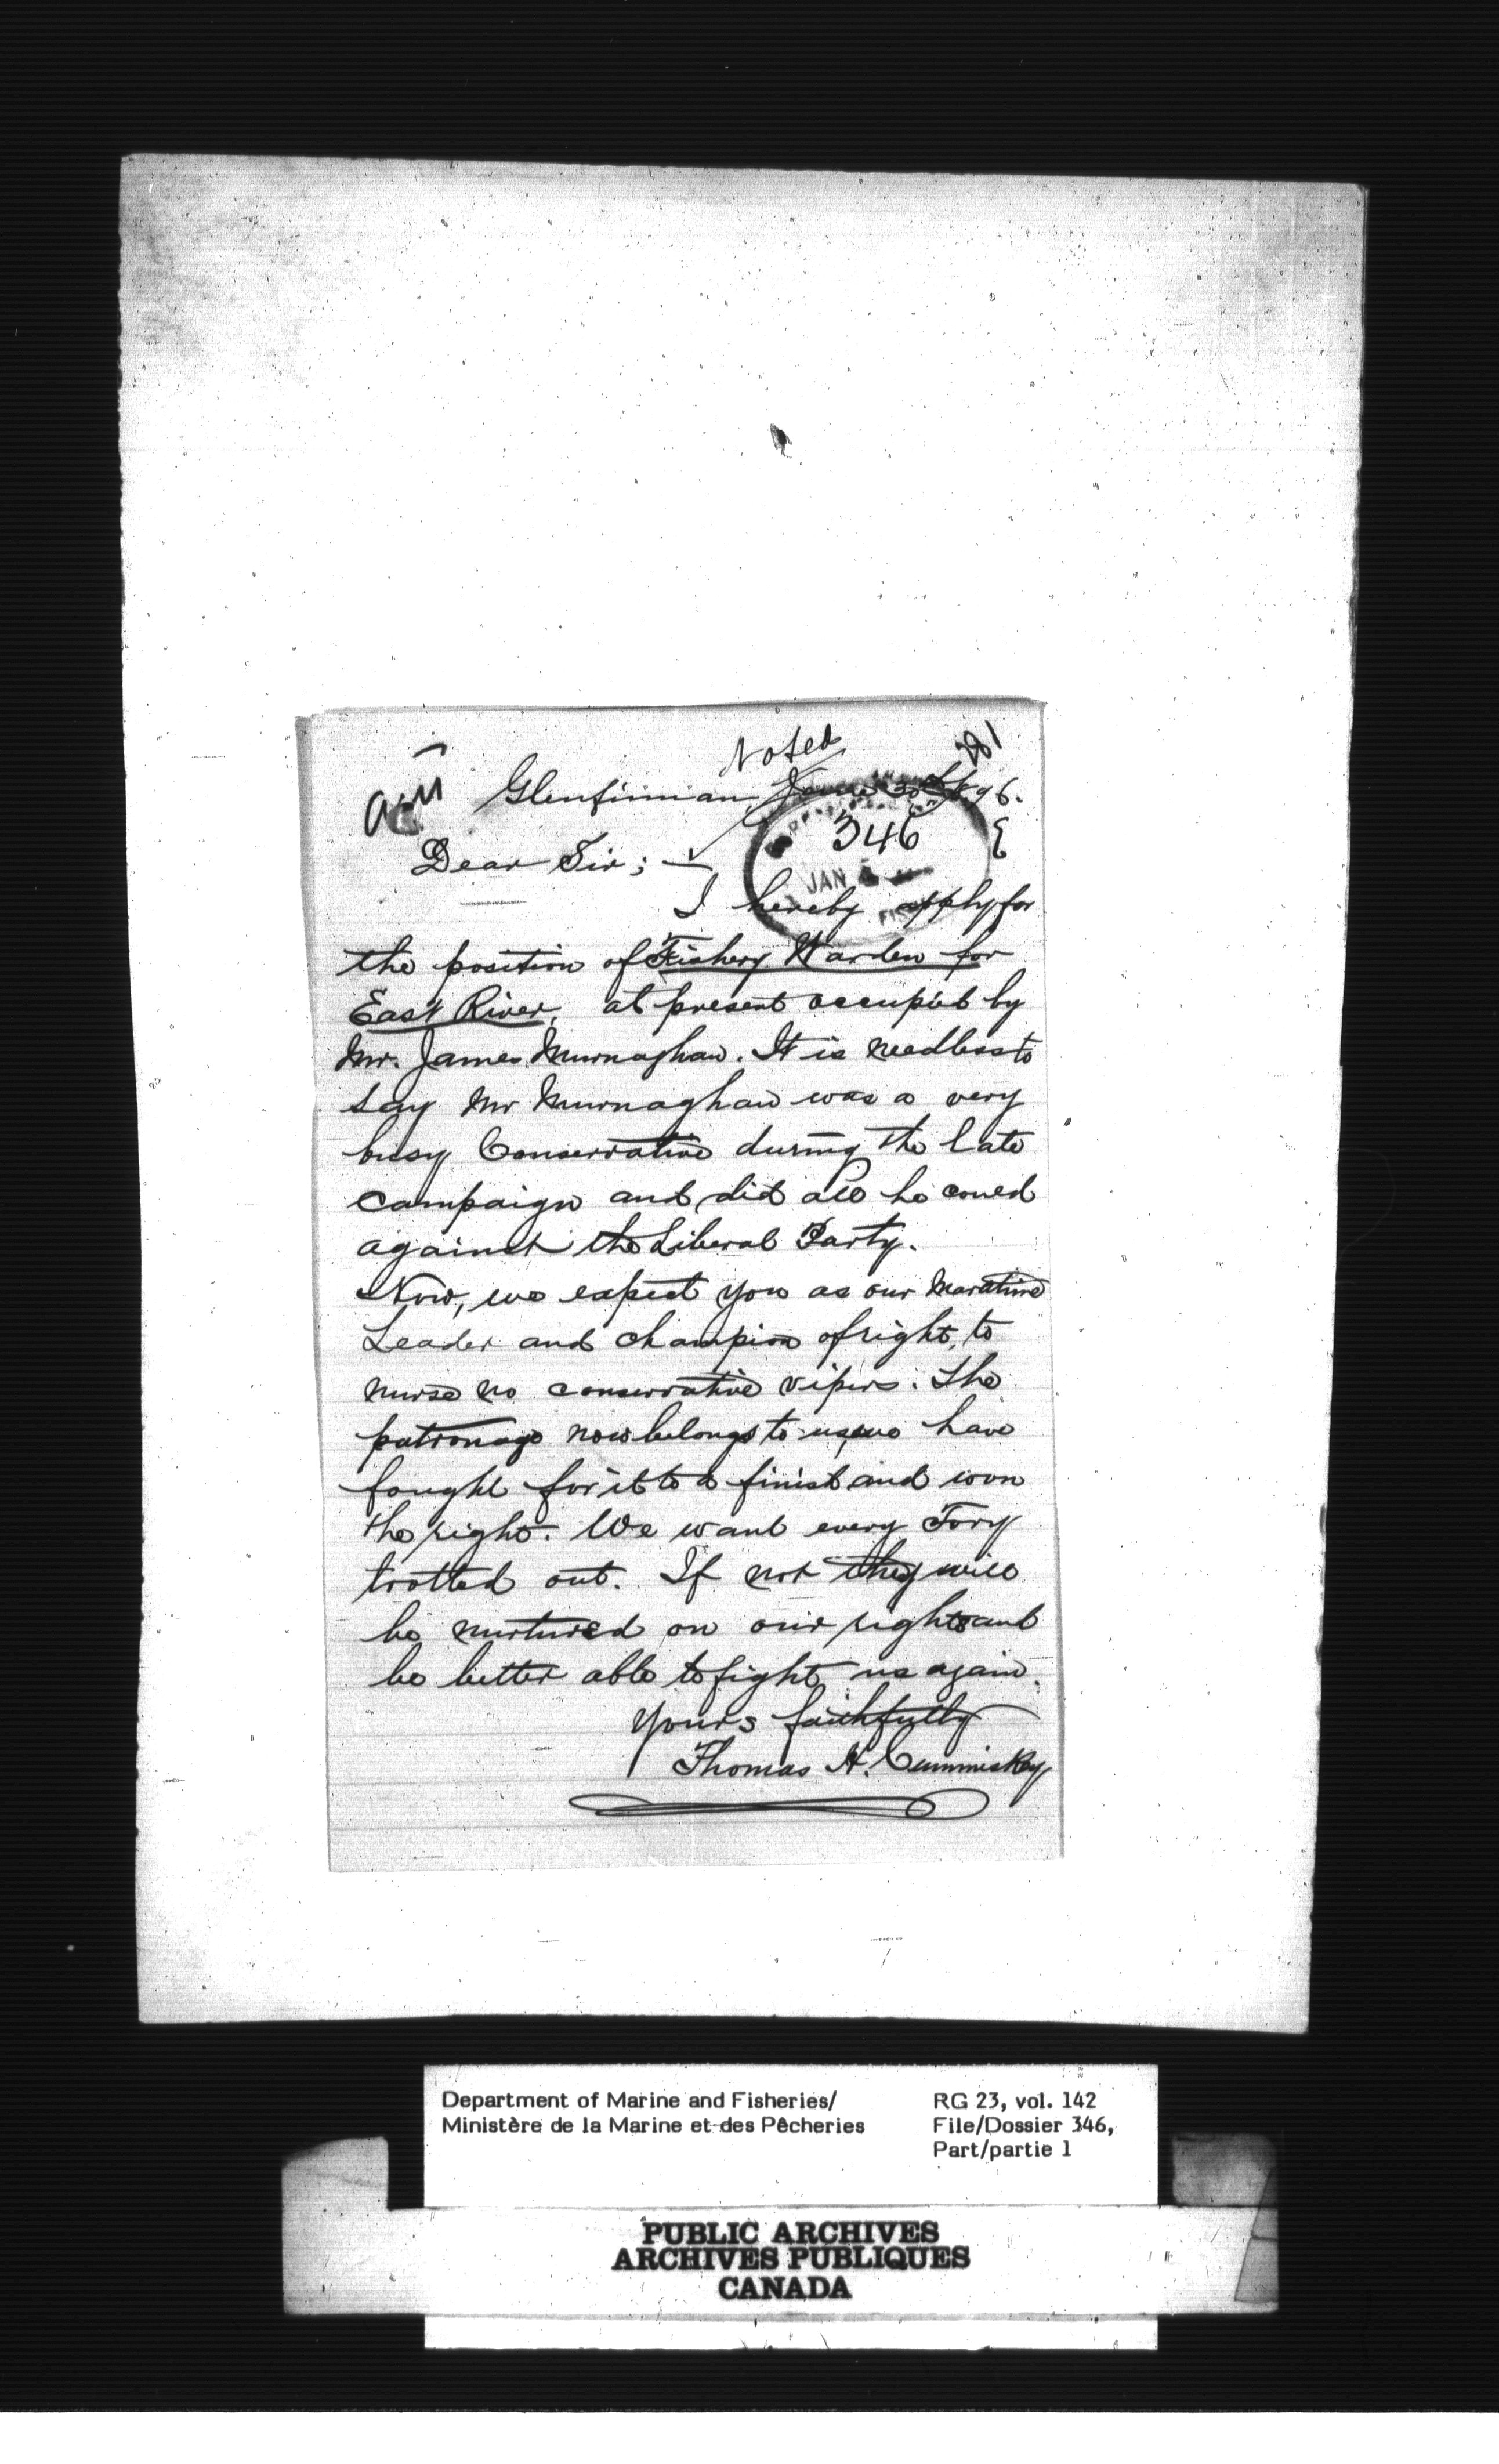 Noted
281
Glenfinnan, June 30th 1896.
346
E
JAN
Dear Sir; —
I hereby apply for
the position of Fishery Warden for
East River, at present occupied by
Mr. James Murnaghan. It is needless to
say Mr Murnaghan was a very
busy Conservative during the late
campaign and did all he could
against the Liberal Party.
Now, we expect you as our Maratime
Leader and champion of right, to
nurse no conservative vipers. The
patronage now belongs to us, we have
fought for it to a finish and won
the right. We want every Tory
trotted out. If not they will
be nurtured on our rights and
be better able to fight us again.
Yours faithfully
Thomas H. Cummiskey
Department of Marine and Fisheries/
Ministère de la Marine et des Pêcheries
RG 23, vol. 142
File/Dossier 346,
Part/partie 1
PUBLIC ARCHIVES
ARCHIVES PUBLIQUES
CANADA